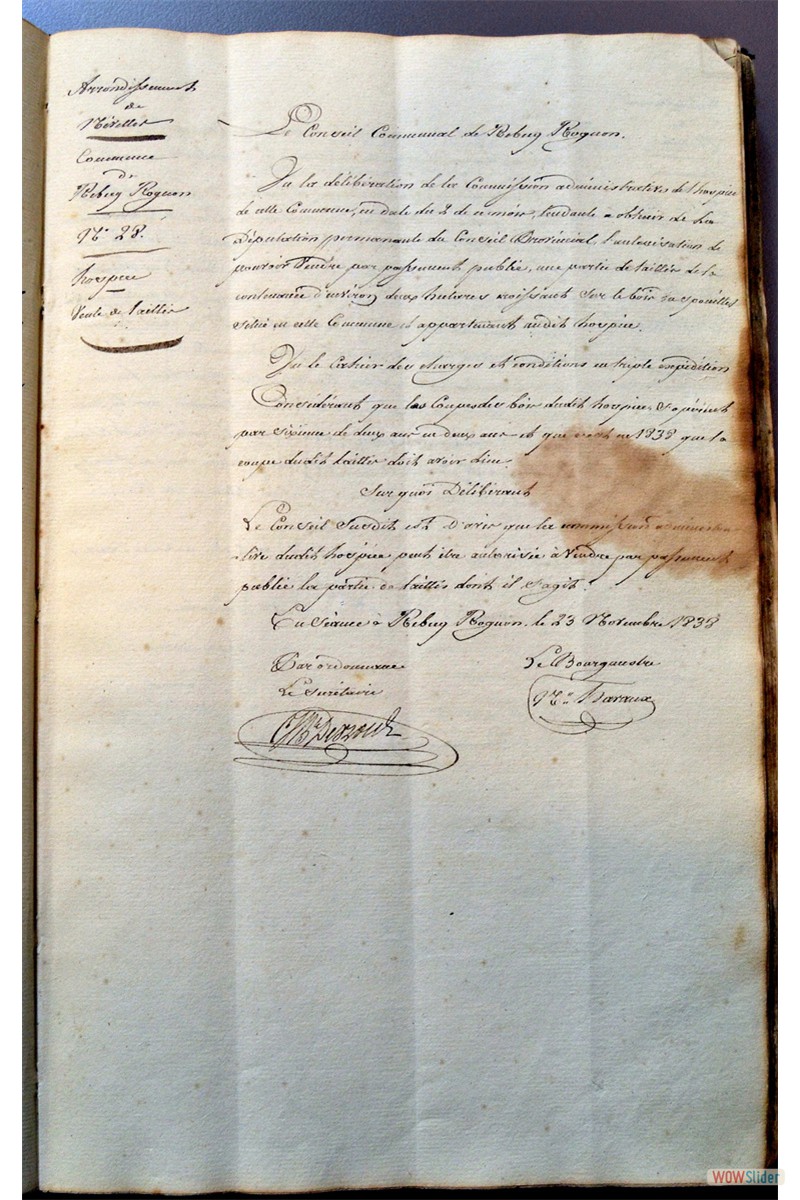 Arrondissement
de
Nivelles
Commune
de
Rebecq Rognon
N° 28.
hospice
Vente de taillis
Le Conseil Communal de Rebecq Rognon.
Vu la délibération de la Commission administrative de l'hospice
de cette Commune, en date du 2 de ce mois, tendante a obtenir de la
Députation permanente du Conseil Provincial, l'autorisation de
pouvoir Vendre par passement public, une partie de taillis de la
contenance d'environ deux hectares croissant sur le bois
situé en cette Commune et appartenant audit hospice.
Vu le Cahier des charges et conditions en triple expédition
Considérant que les Coupes des bois dudit hospice s'opèrent
par de deux ans en deux ans et que c'est en 1838 que la
coupe dudit taillis doit avoir lieu.
Sur quoi Délibérant
Le Conseil Susdit est D'avis que la commission administra-
-tive dudit hospice peut être autorisée à Vendre par passement
public la partie de taillis dont il s'agit.
En Séance à Rebecq Rognon, le 23 Novembre 1838
Par ordonnance
Le Bourgmestre
Le Secrétaire
WOWSlider